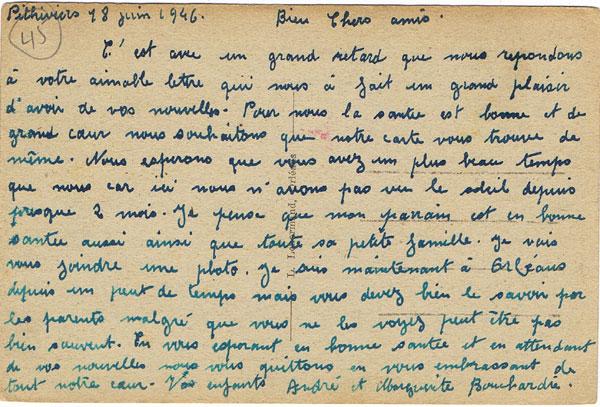 Pithiviers 18 juin 1946. Bien Chers amis.
45
C'est avec un grand retard que nous repondons
à votre aimable lettre qui nous à fait un grand plaisir
d'avoir de vos nouvelles. Pour nous la santée est bonne et de
grand cœur nous souhaitons que notre carte vous trouve de
même. Nous esperons que vous avez un plus beau temps
que nous car ici nous n'avons pas vue le soleil depuis
presque 2 mois. Je pense que mon parrain est en bonne
santée aussi ainsi que toute sa petite famille. Je vais
vous joindre une photo. Je suis maintenant à Orléans
depuis un peut de temps mais vous devez bien le savoir por
les parents malgré que vous ne les voyez peut être pas
bien souvent. En vous esperant en bonne santée et en attendant
de vos nouvelles nous vous quittons en vous embrassant de
tout notre cœur. Vos enfants André et Marguerite Bouchardie.